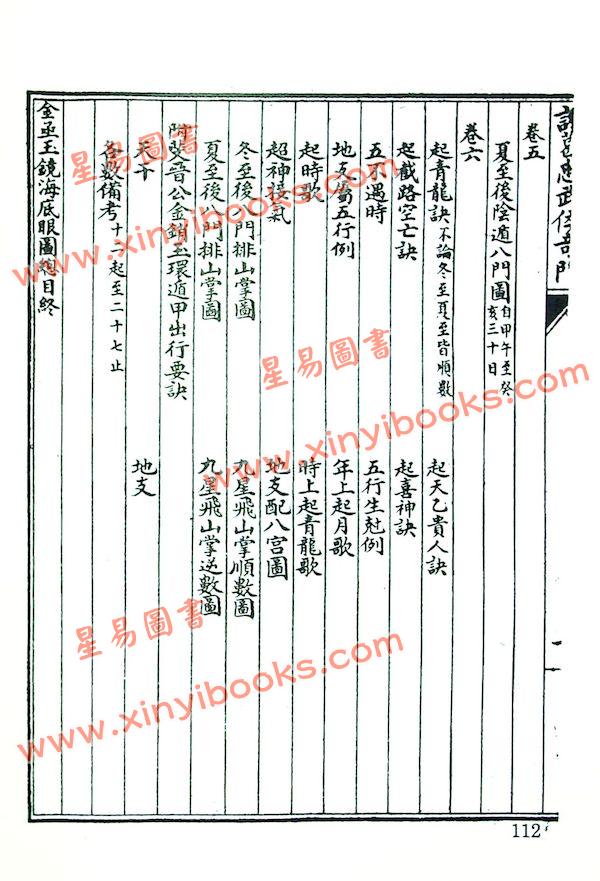 諸葛忠武侯奇門
一
卷五
夏至後陰遁八門圖自甲午至癸亥三十日
卷六
起青龍訣不論冬至夏至皆順數 起天乙貴人訣
起截路空亡訣 起喜神訣
五不遇時 五行生尅例
地支屬五行例 年上起月歌
起時歌 時上起青龍歌
超神接氣 地支配八宮圖
冬至後八門排山掌圖 九星飛山掌順數圖
夏至後八門排山掌圖 九星飛山掌逆數圖
附斐晉公金鎖玉環遁甲出行要訣
天干 地支
各數備考十二起至二十七止
金函玉鏡海底眼圖總目終
112
星易圖書
www.xinyibooks.com
星易圖書
www.xinyibooks.com
星易圖書
www.xinyibooks.com